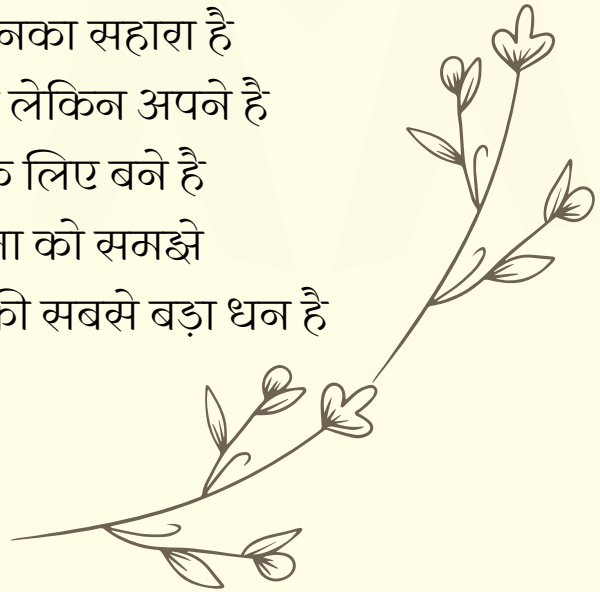 नका सहारा है
लेकिन अपने है
लिए बने है
को समझे
की सबसे बड़ा धन है